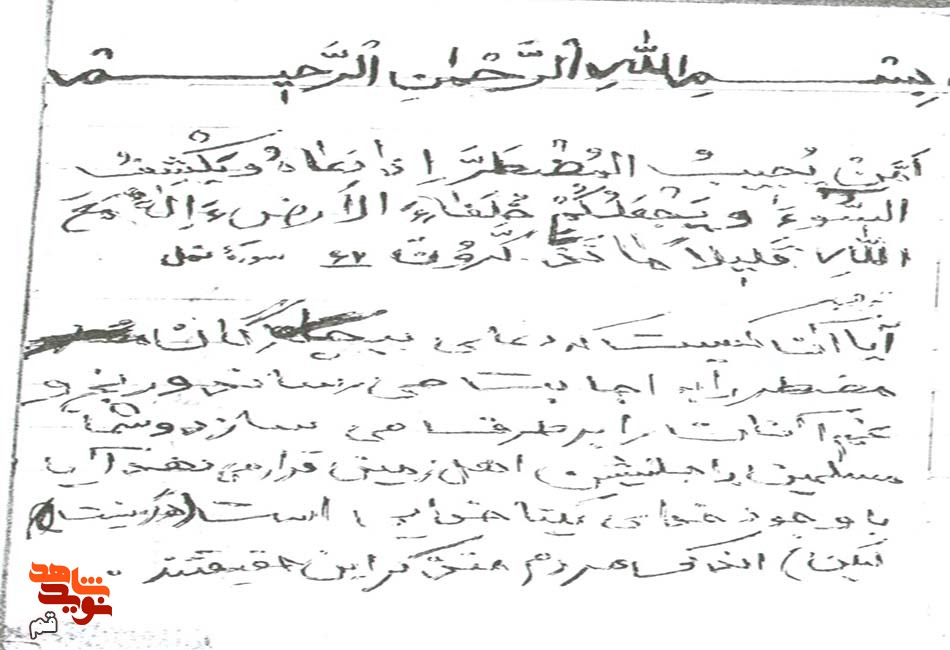 بِسْمِ اللهِ الرَّحْمٰنِ الرَّحيم
اَمَّنْ يُجيبُ الْمُضْطَرَّ اِذا دَعاهُ وَ يَكْشِفُ
السُّوءَ وَ يَجْعَلُكُمْ خُلَفاءَ الْاَرْضِ ءَاِلهٌ مَعَ
اللهِ قَليلاً ما تَذَكَّرُونَ ۶۲ سورهٔ نمل
ترجمه
آیا آن کیست که دعای بیچارگان
مضطر را به اجابت می رساند و رنج و
غم آنان را برطرف می سازد و شما
مسلمین را جانشین اهل زمین قرار می نهد آیا
با وجود خدای یکتا خدایی است (هرگز نیست
لیکن) اندکی مردم متذکر این حقیقتند .
نوید شاهد
قم